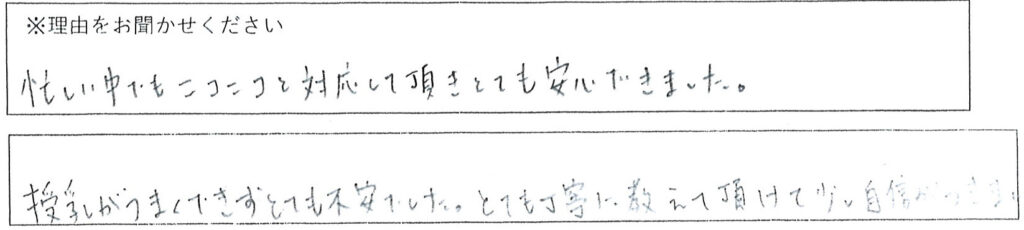 ※理由をお聞かせください
忙しい中でもニコニコと対応して頂きとても安心できました。
授乳がうまくできずとても不安でした。とても丁寧に教えて頂けて少し自信がつきま